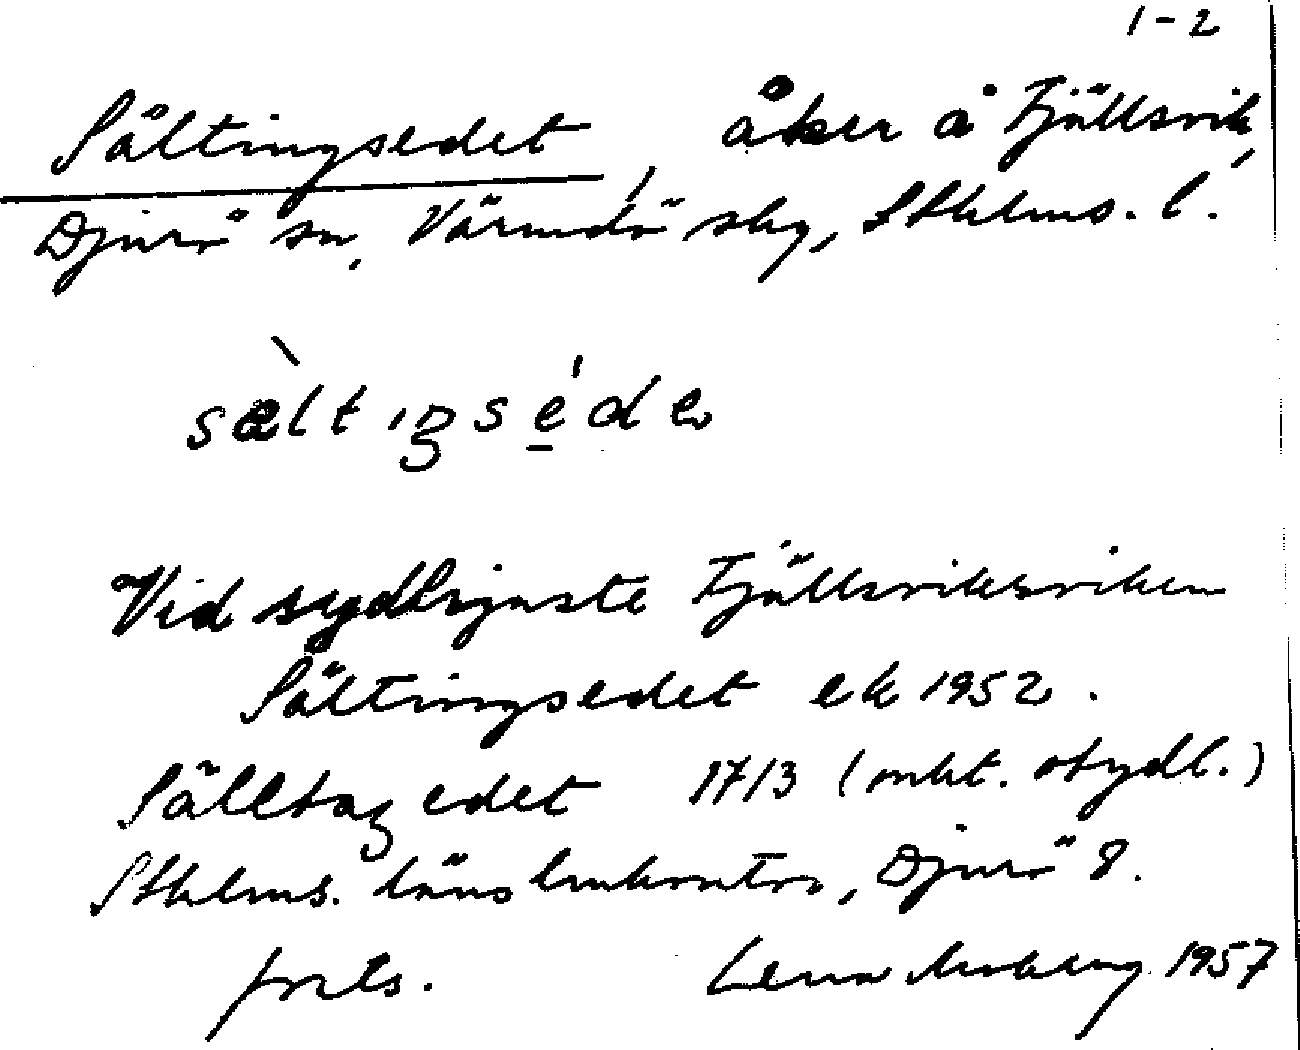 1-2
Sältingsedet, åker å Fjällsvik,
Djurö sn, Värmdö skg, Sthlms. l.
sæltıŋséde
Vid sydligaste Fjällsviksviken
Sältingsedet ek 1952.
Sälltagedet 1713 (mkt. otydl.)
Sthlms. läns lmkontor, Djurö 8.
forts. Lena Moberg 1957